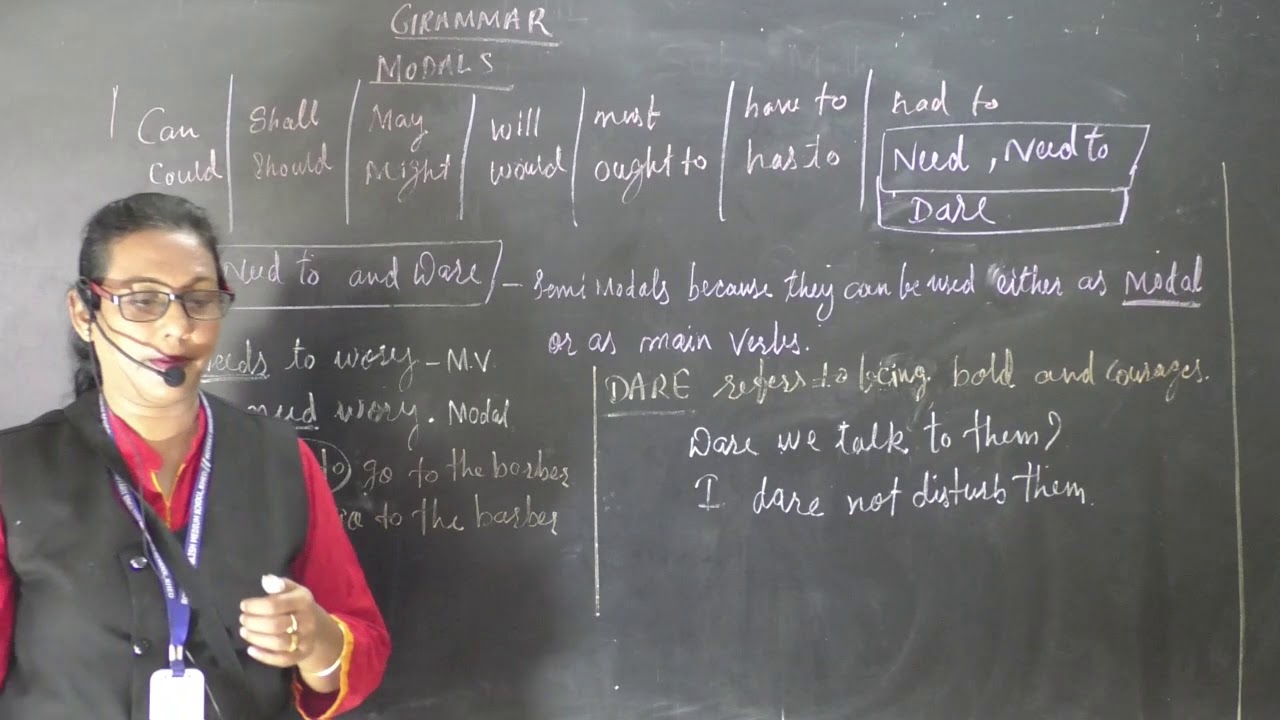 GRAMMAR
MODALS
Can | Shall | May | will | must | have to | had to
Could | Should | Might | would | ought to | has to | Need, Need to
Dare
Need to and Dare - Semi Modals because they can be used either as Modal
or as main Verbs.
needs to worry - M.V.
need worry. Modal
to go to the barber
to the barber
DARE refers to being bold and courages.
Dare we talk to them?
I dare not disturb them.